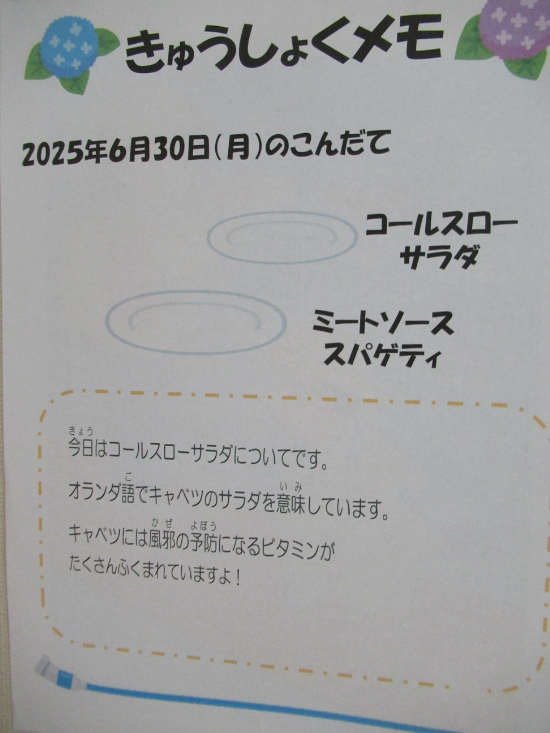 きゅうしょくメモ
2025年6月30日(月)のこんだて
コールスロー
サラダ
ミートソース
スパゲティ
きょう
今日はコールスローサラダについてです。
ご いみ
オランダ語でキャベツのサラダを意味しています。
かぜ よぼう
キャベツには風邪の予防になるビタミンが
たくさんふくまれていますよ!